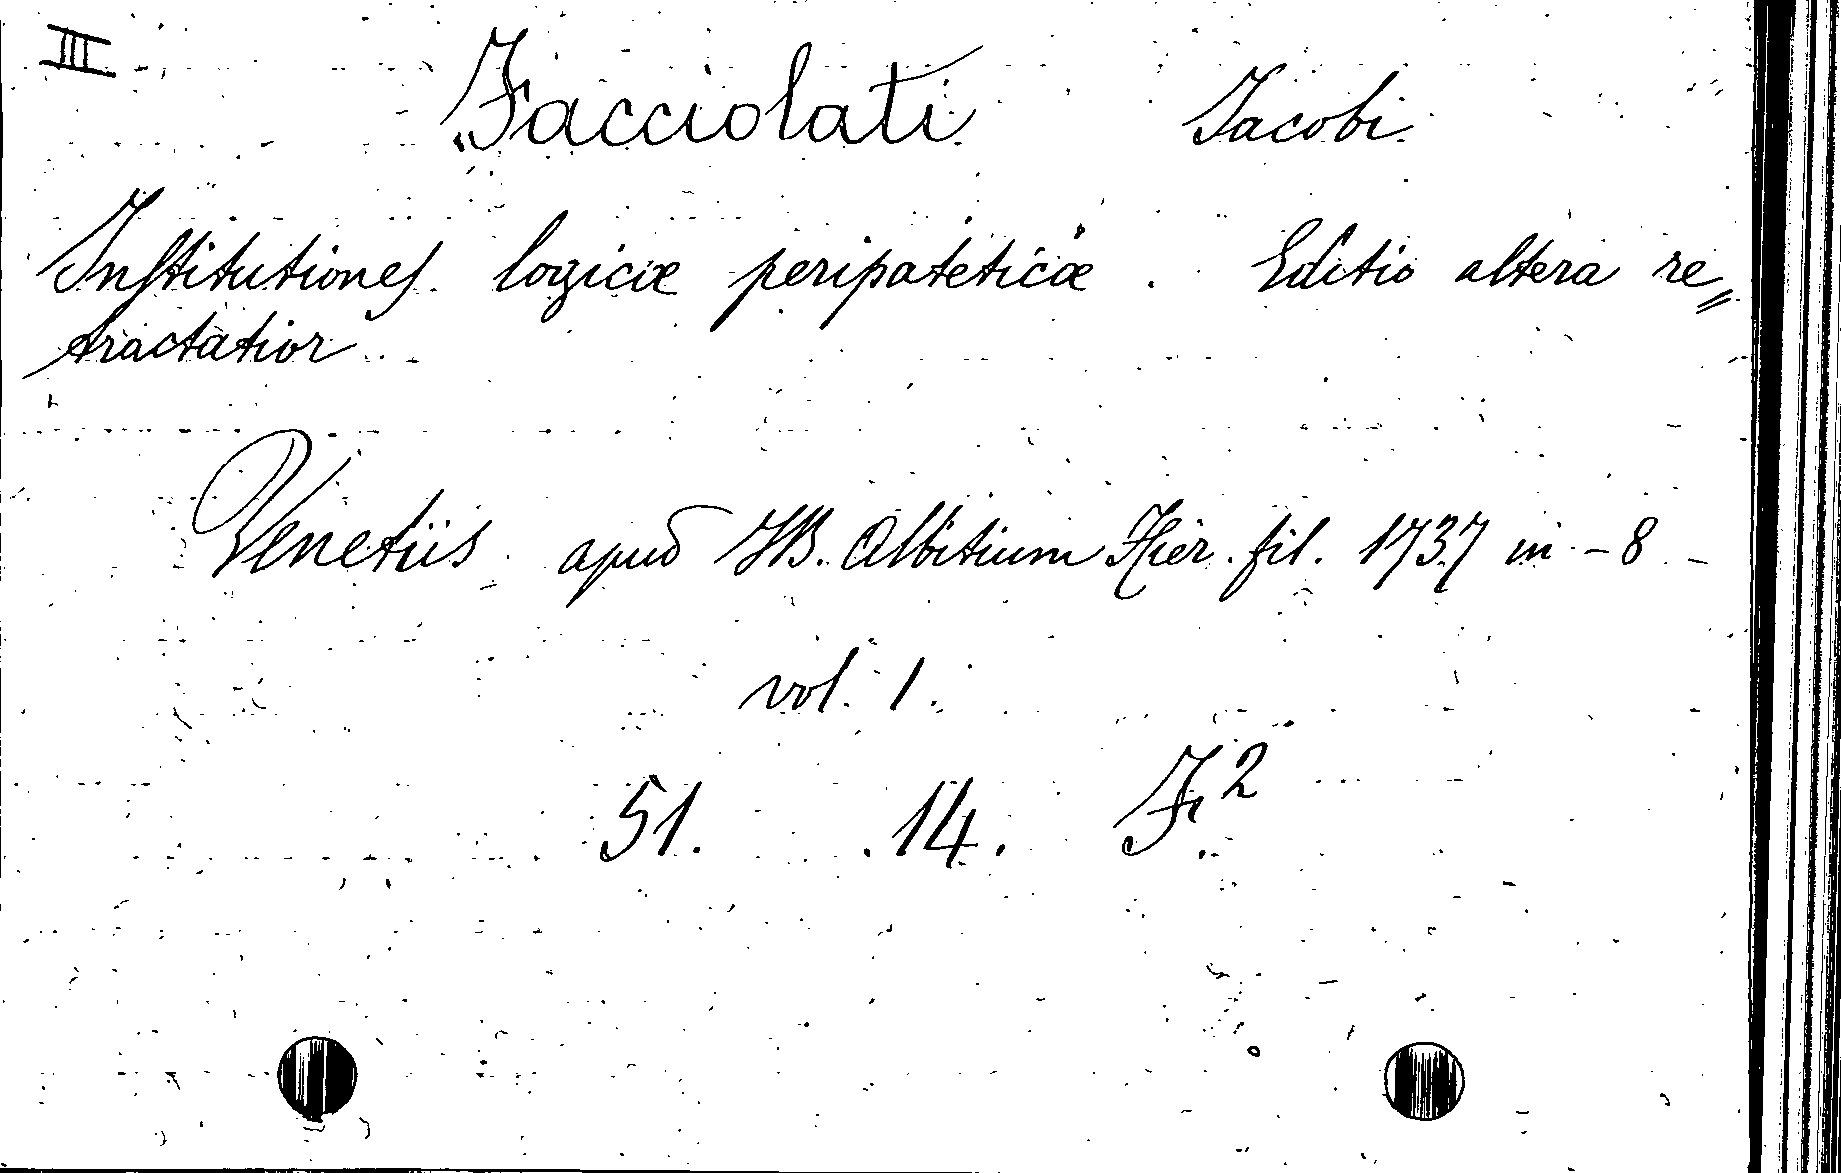 III
Facciolati Jacobi.
Institutiones logicæ peripateticæ. Editio altera re„
tractatior
Venetiis apud J.B. Albitium Hier. fil. 1737 in-8-
vol. 1.
51. 14. F.²